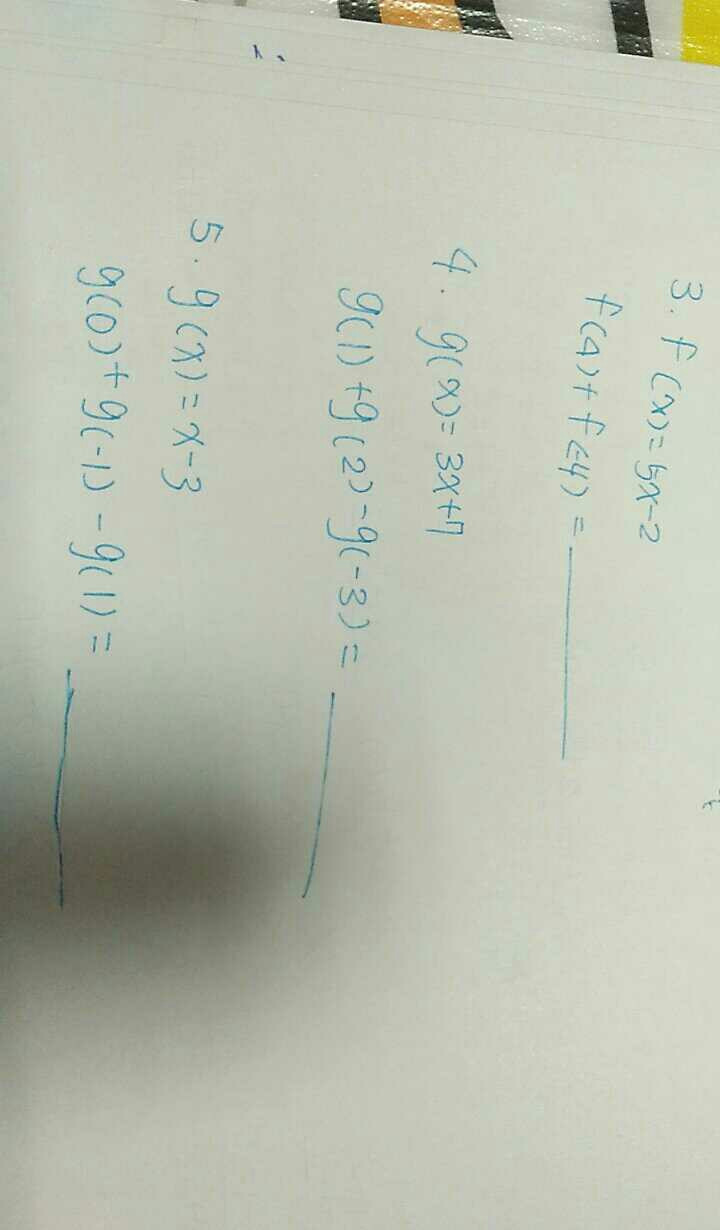 3. f(x)=5x-2
f(4)+f(-4)=
4. g(x)=3x+7
g(1)+g(2)-g(-3)=
5. g(x)=x-3
g(0)+g(-1)-g(1)=